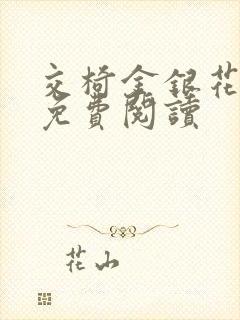 交椅金銀花
免費閱讀
花山